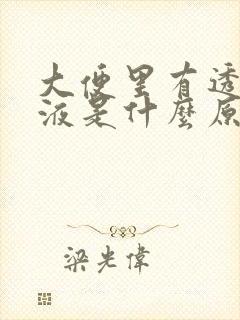 大便里有透
液是什麼原
梁光偉